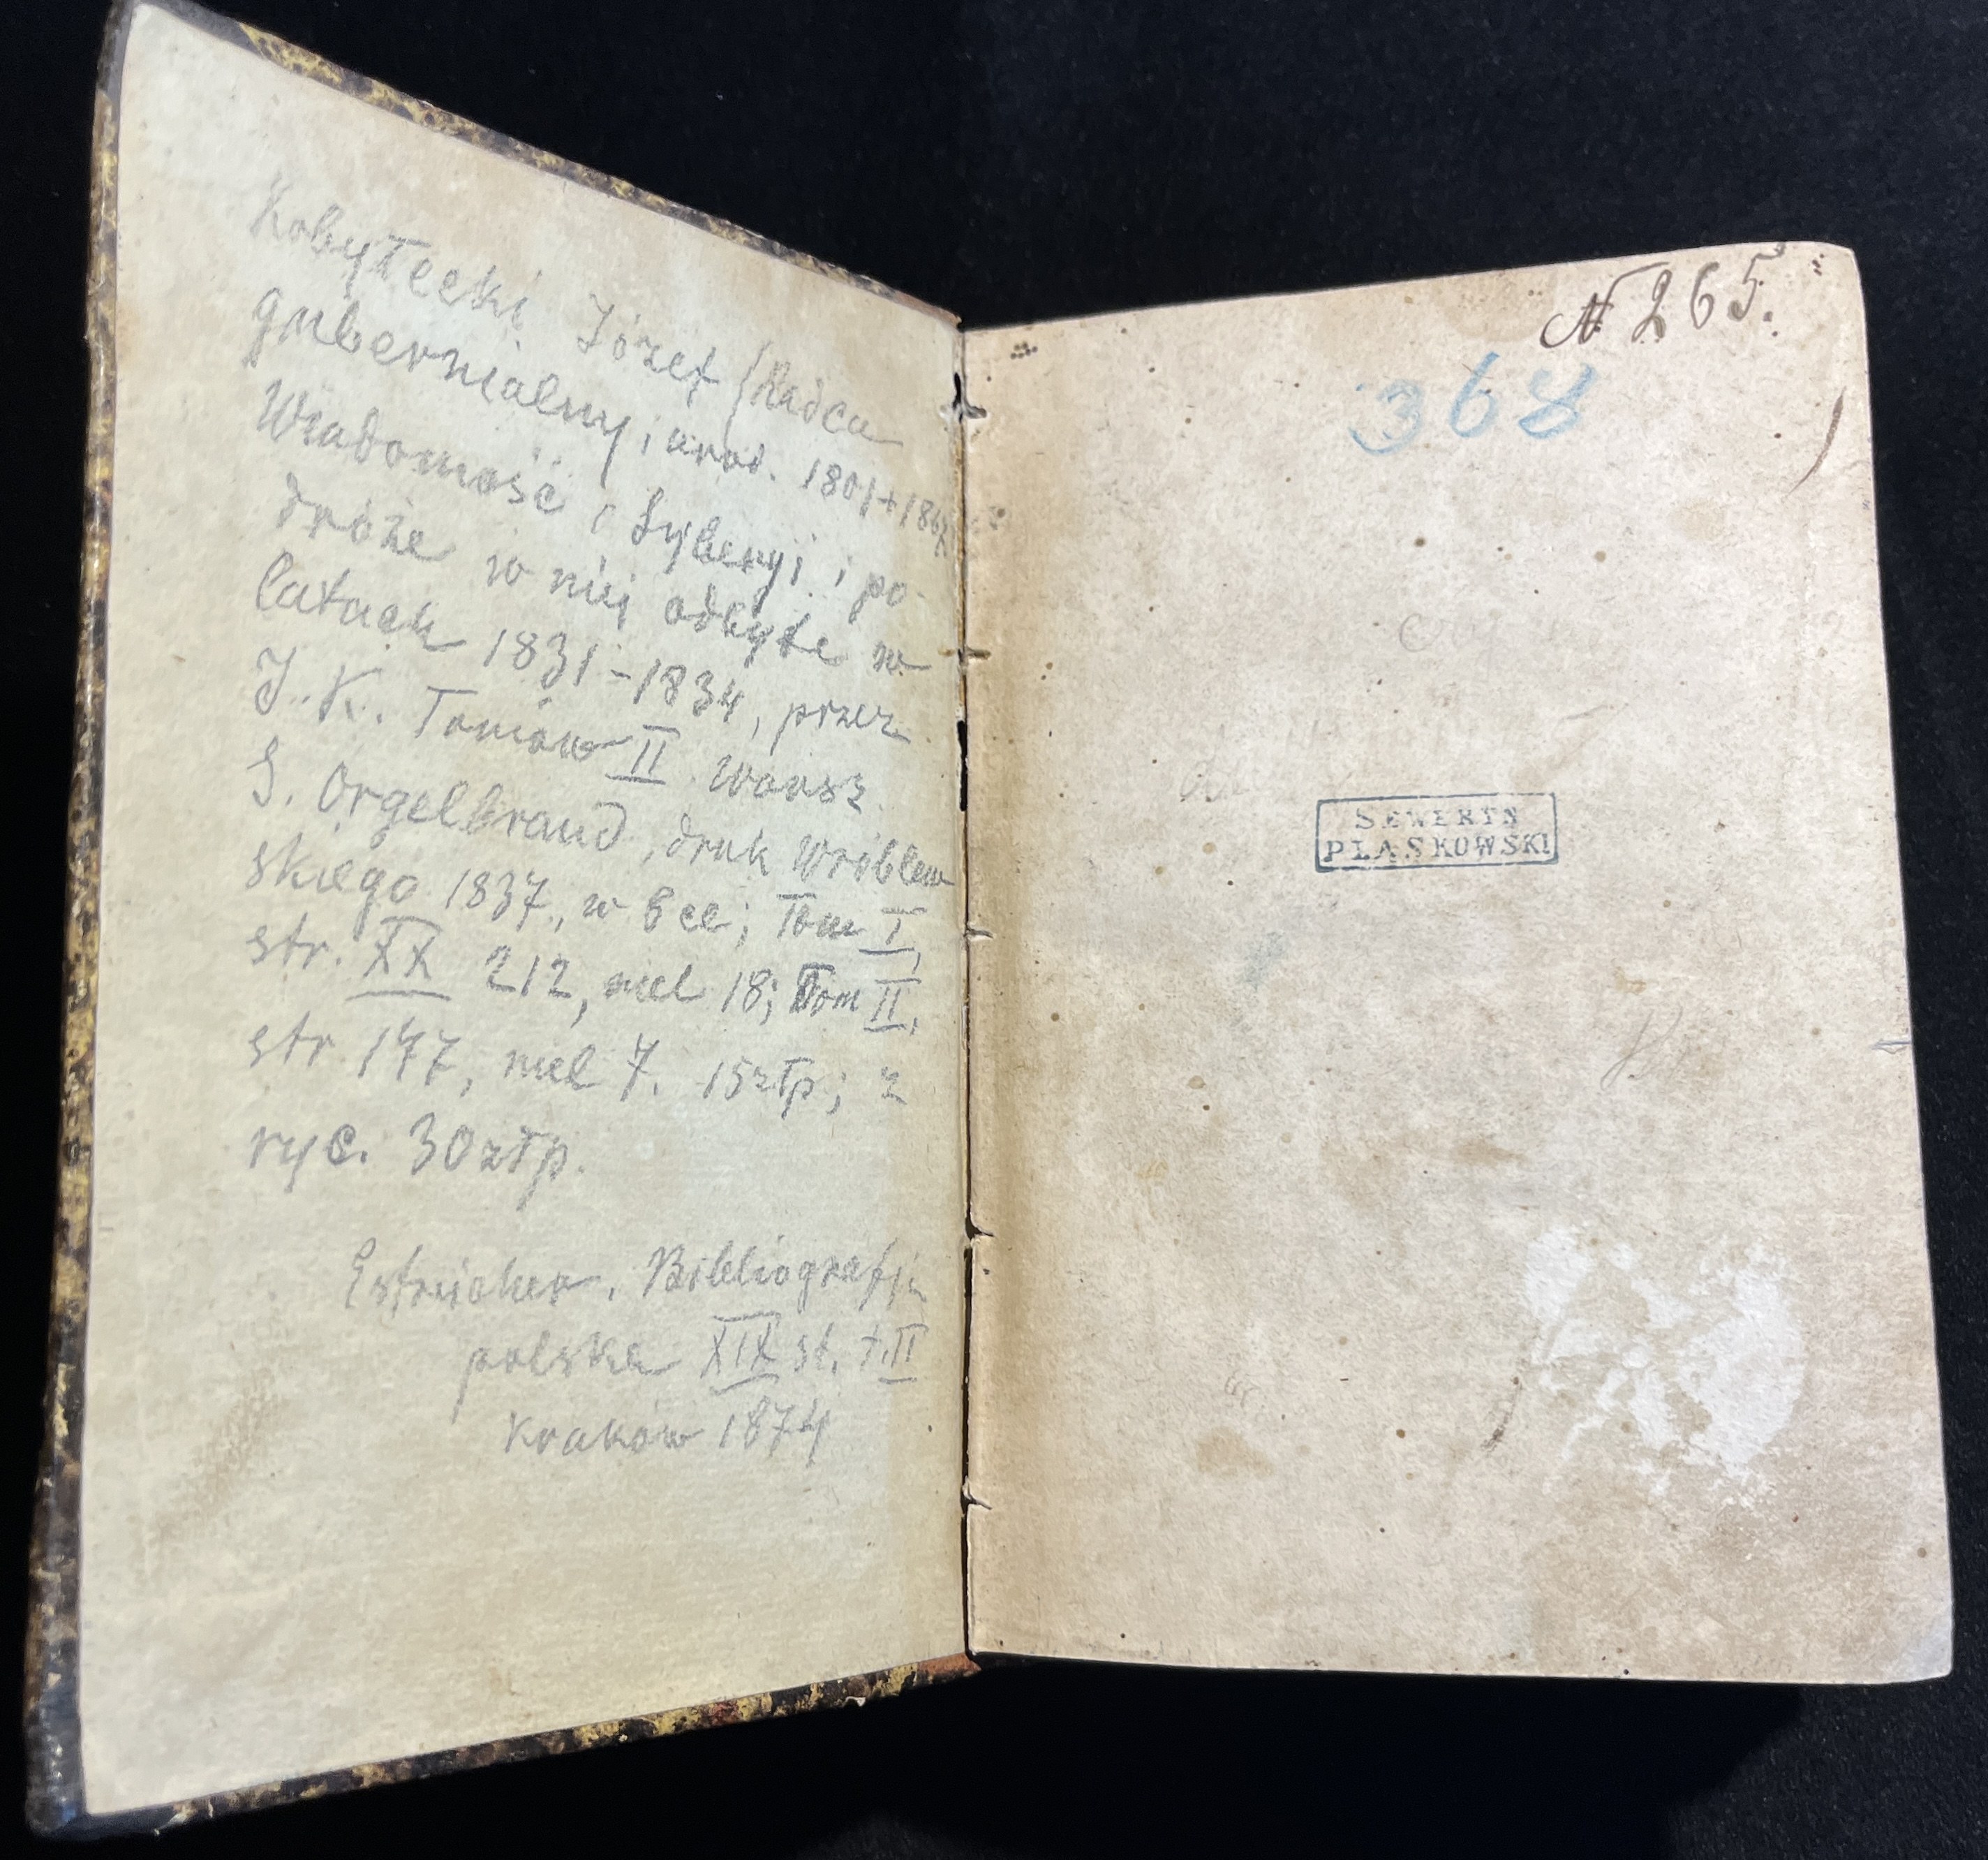 Kobyłecki Józef (Radca
gubernialny, urod. 1801 + 1867
Wiadomość o Syberyi i po-
dróże w niej odbyte w
latach 1831-1834, przez
J. K. Tomów II. Warsz.
S. Orgelbrand, druk Wróblew
skiego 1837, w 8ce; Tom I,
str. XX 212, niel 18; Tom II,
str 177, niel 7. 15złp; z
ryc. 30złp.
Estreicher. Bibliografja
polska XIX st. t.II
Kraków 1874
№ 265.
368
SEWERYN
PLASKOWSKI